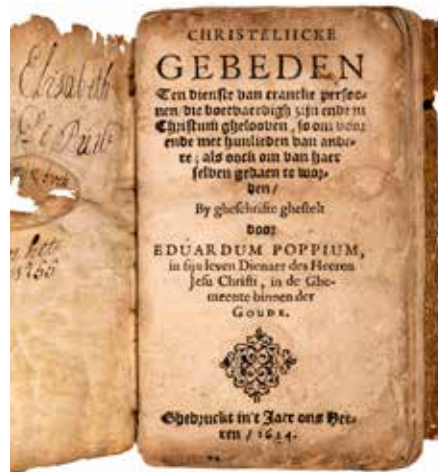 Elisabeth
CHRISTELIICKE
GEBEDEN
Ten dienste van crancke persoo-
nen / die boetvaerdigh zijn ende in
Christum ghelooven, so om voor
ende met hunlieden van ande-
re; als oock om van haer
selven gedaen te wor-
den /
By gheschrifte ghestelt
door
EDUARDUM POPPIUM,
in sijn leven Dienaer des Heeren
Jesu Christi, in de Ghe-
meente binnen der
GOUDE.
Ghedruckt in't Jaer ons Hee-
ren / 1624.